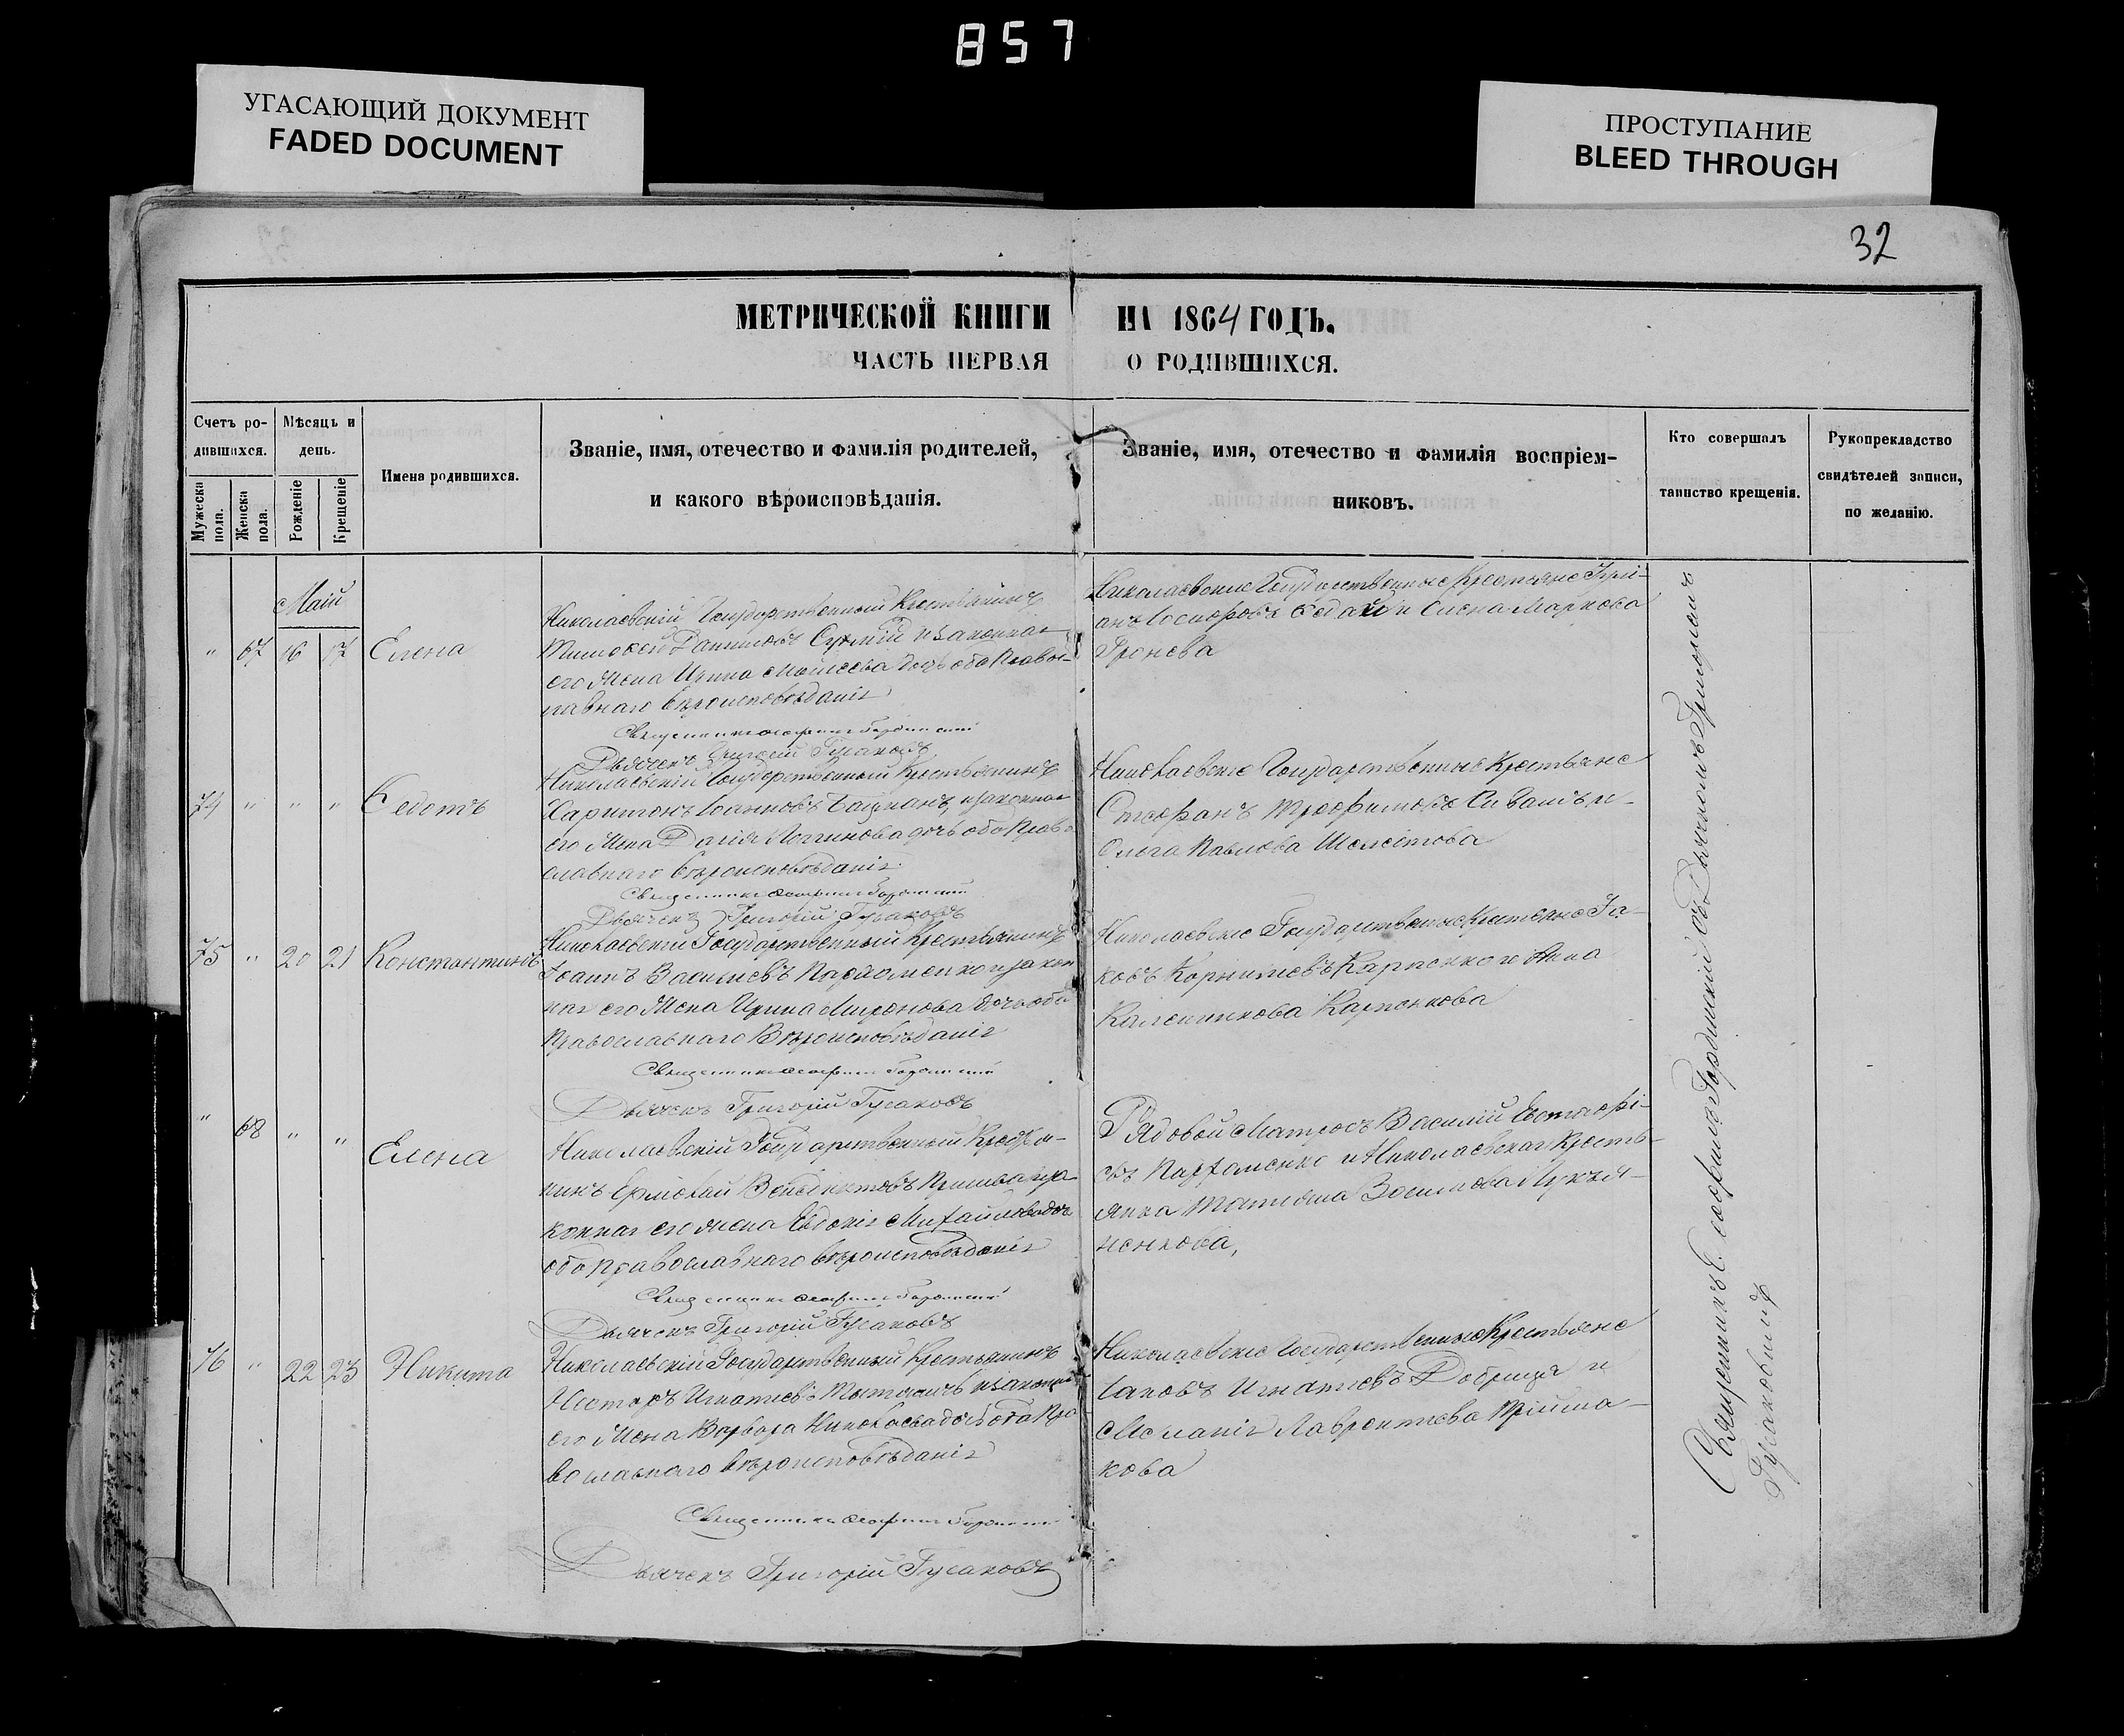 857
УГАСАЮЩИЙ ДОКУМЕНТ
FADED DOCUMENT
ПРОСТУПАНИЕ
BLEED THROUGH
32
МЕТРИЧЕСКОЙ КНИГИ НА 1864 ГОДЪ.
ЧАСТЬ ПЕРВАЯ О РОДИВШИХСЯ.
Счетъ ро-
дившихся.
Мужеска
пола.
Женска
пола.
Мѣсяцъ и
день.
Рожденіе
Крещеніе
Имена родившихся.
Званіе, имя, отечество и фамилія родителей,
и какого вѣроисповѣданія.
Званіе, имя, отечество и фамилія воспріем-
никовъ.
Кто совершалъ
таинство крещенія.
Рукоприкладство
свидѣтелей записи,
по желанію.
Маій
" 67 16 17 Елена
Николаевскій Государственный Крестьянинъ
Тимофей Даниловъ и законная
его Жена Ирина Моисеева дочь оба Правос-
лавнаго Вѣроисповѣданія
Священникъ
Дьячекъ Григорій Гусаковъ
Николаевские Государственные Крестьяне
Іосифовъ Седай и Елена Маркова
74 " " " Федотъ
Николаевскій Государственный Крестьянинъ
Харитонъ Іоанновъ и законная
его Жена Дарія Логинова дочь оба Право
славнаго Вѣроисповѣданія
Священникъ
Дьячекъ Григорій Гусаковъ
Николаевские Государственные Крестьяне
Стефанъ Трофимовъ Сивашъ и
Ольга Павлова Шелестова
75 " 20 21 Константинъ
Николаевскій Государственный Крестьянинъ
Іоаннъ Васильевъ Пархоменко и закон
ная его Жена Ирина Миронова дочь оба
Православнаго Вѣроисповѣданія
Священникъ
Дьячекъ Григорій Гусаковъ
Николаевские Государственные Крестьяне Іа-
ковъ Корнилевъ Карпенко и Анна
Калиникова Карпенкова
" 68 " " Елена
Николаевскій Государственный Крестья-
нинъ Ермолай Венедиктовъ и за
конная его жена Евдокія Михайлова доч
оба Православнаго вѣроисповѣданія
Священникъ
Дьячекъ Григорій Гусаковъ
Рядовой Матросъ Василій Евстафі-
въ Пархоменко и Николаевская Кресть-
янка Татіана Василова Лукья-
ненкова,
76 " 22 23 Никита
Николаевскій Государственный Крестьянинъ
Несторъ Игнатіевъ и законная
его Жена Варвара Николаева дочь оба Пра
вославнаго вѣроисповѣданія
Священникъ
Дьячекъ Григорій Гусаковъ
Николаевские Государственные Крестьяне
Іаковъ Игнатіевъ Добрица и
Меланія Лаврентіева Пріима-
кова
Священникъ съ Дьячкомъ Григоріемъ
Гусаковымъ